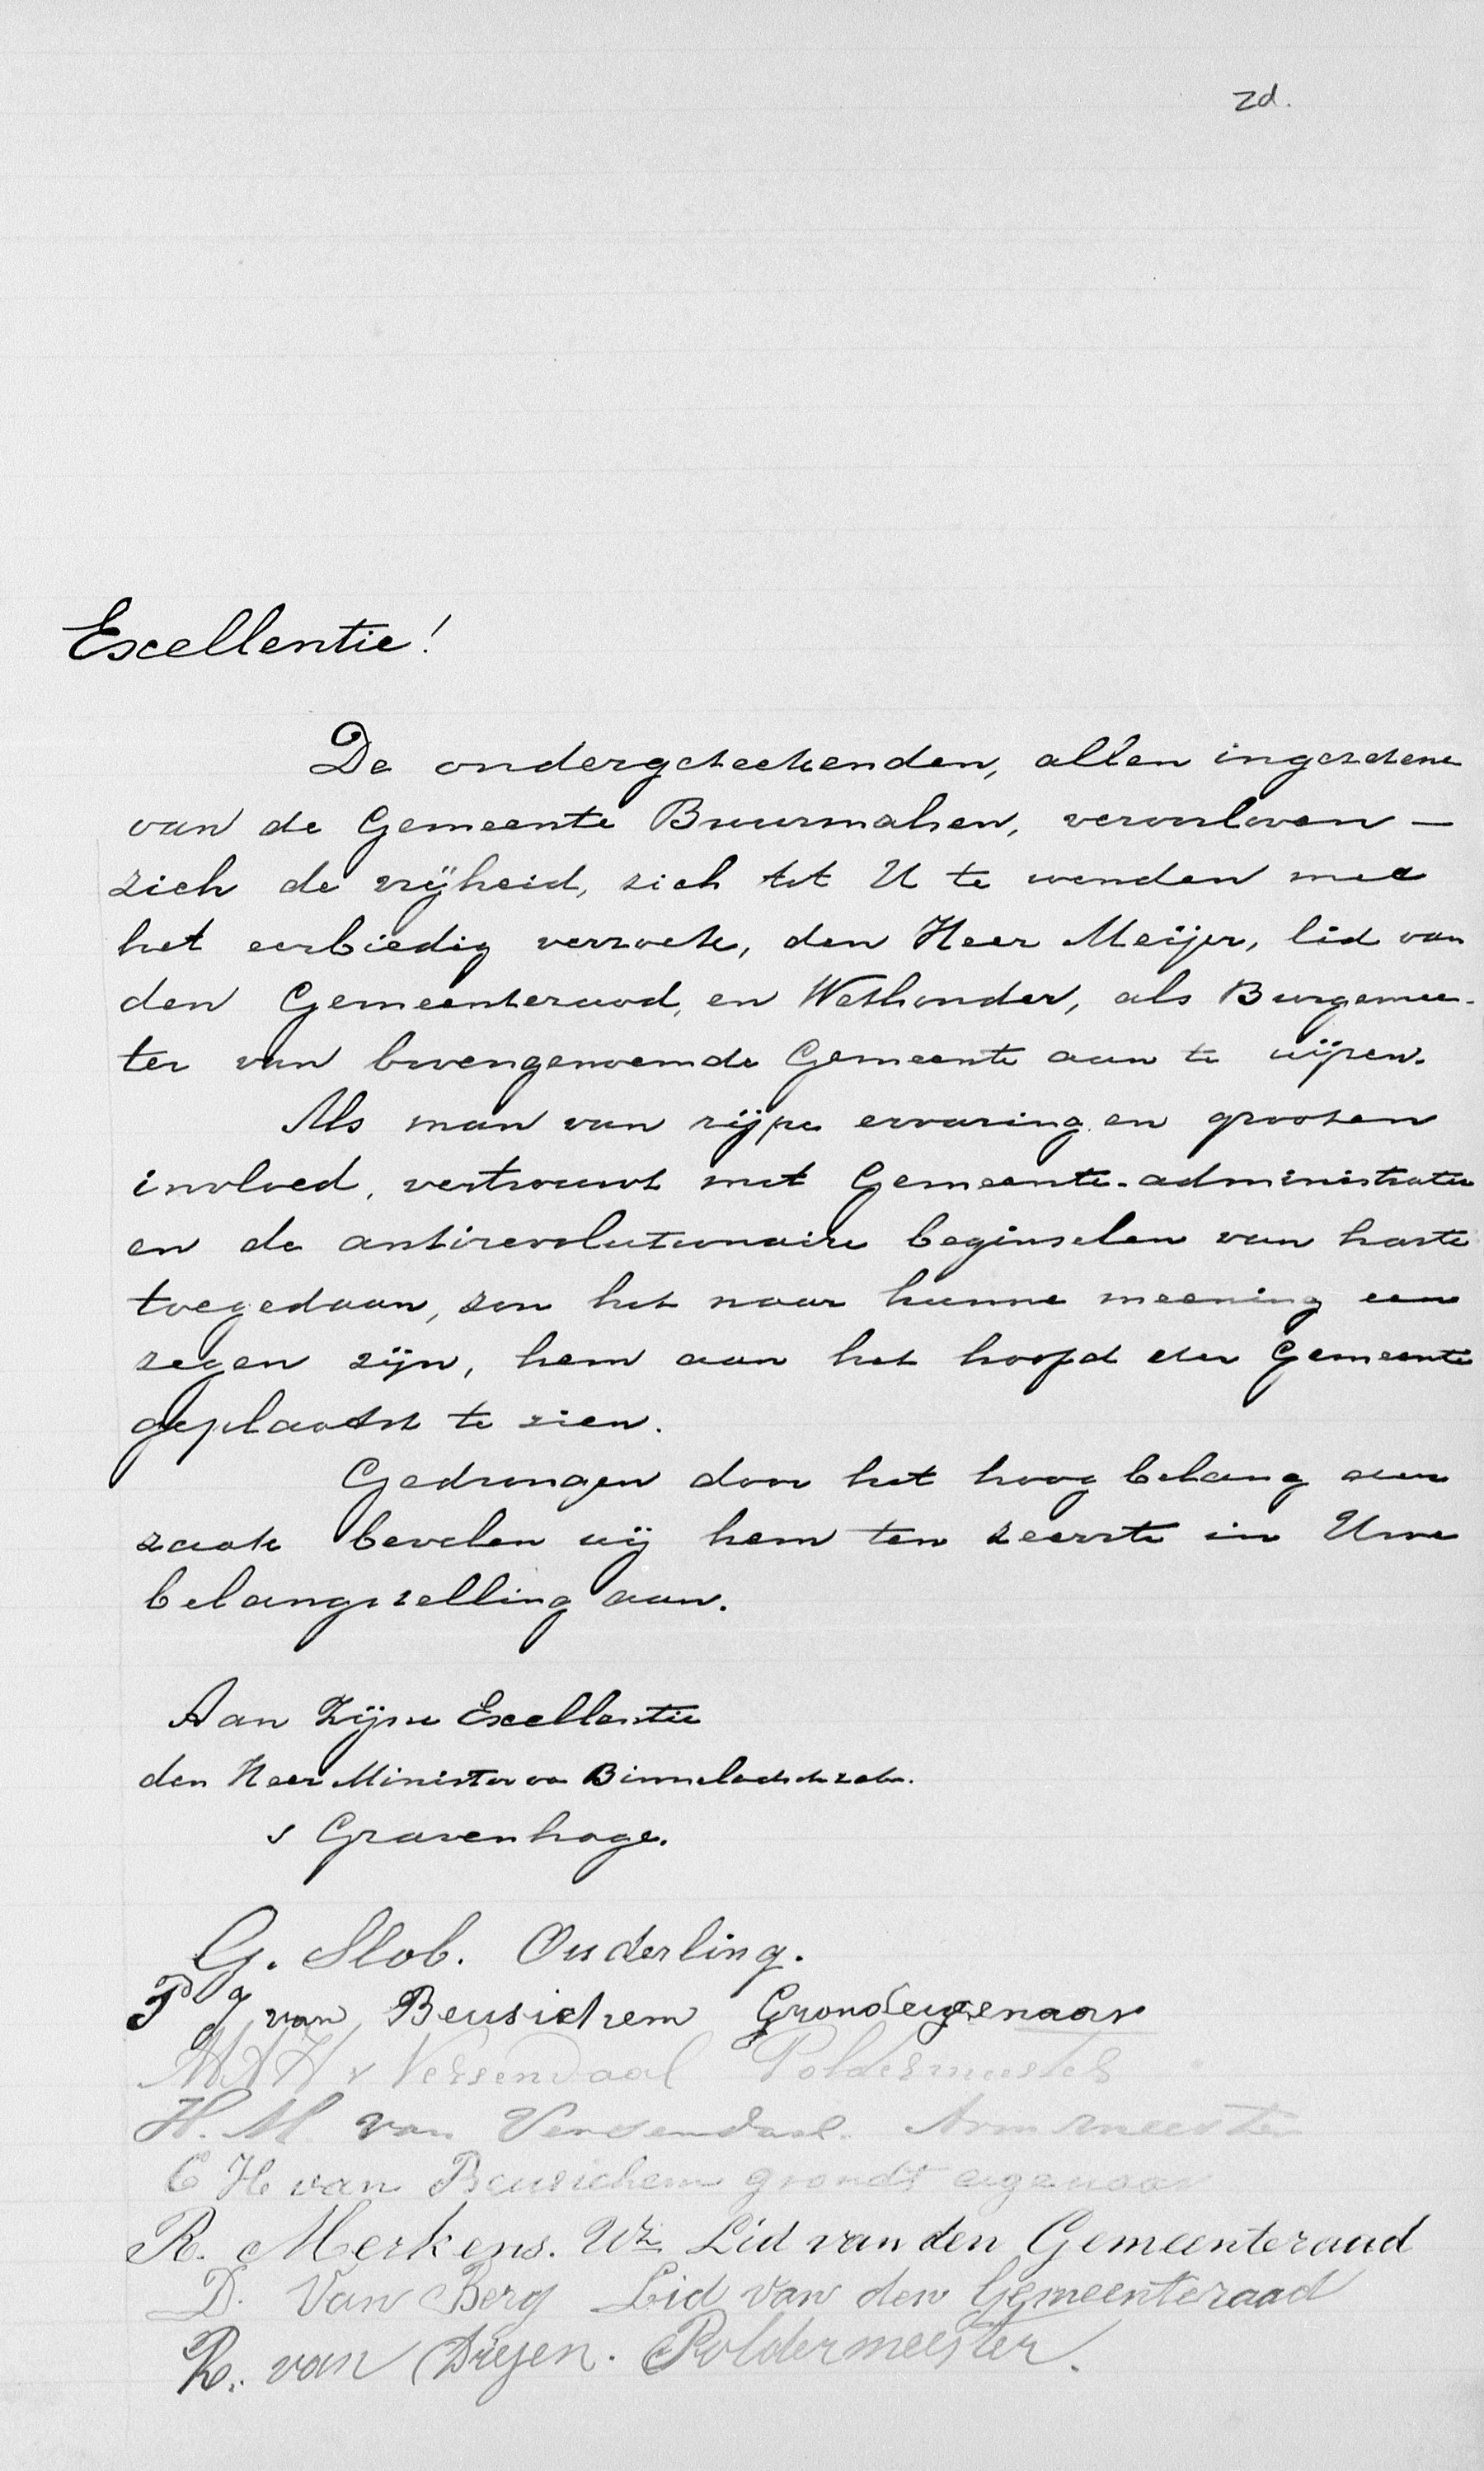 zd.
Excellentie!
De ondergeteekenden, allen ingezetene
van de Gemeente Buurmalsen, veroorloven —
zich de vrijheid, zich tot U te wenden met
het eerbiedig verzoek, den Heer Meijer, lid van
den Gemeenteraad, en Wethouder, als Burgemees-
ter van bovengenoemde Gemeente aan te wijzen.
Als man van rijpe ervaring en grooten
invloed, vertrouwd met Gemeente-administratie
en de antirevolutionaire beginselen van harte
toegedaan, zou het naar hunne meening een
zegen zijn, hem aan het hoofd der Gemeente
geplaatst te zien.
Gedrongen door het hoog belang der
zaak bevelen wij hem ten zeerste in Uwe
belangstelling aan.
Aan Zijne Excellentie
den Heer Minister van Binnenlandsche zaken.
s Gravenhage.
G. Slob. Ouderling.
P J van Beusichem Grondeigenaar
v Versendaal Poldermeester
H. M. van Versendaal. Armmeester
C H van Beusichem grondt eigenaar
R. Merkens. Wz Lid van den Gemeenteraad
D. Van Berg Lid van den Gemeenteraad
R. van Driesen. Poldermeester.